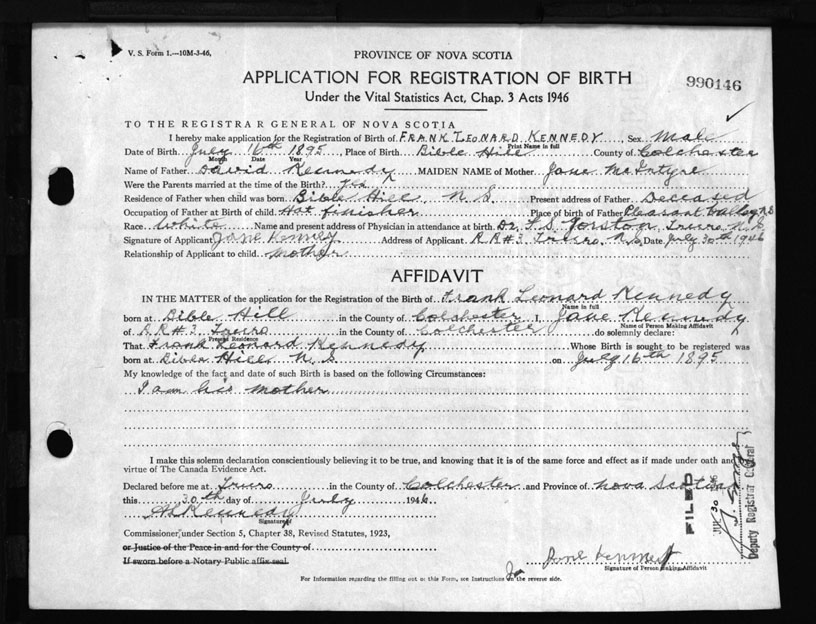 V. S. Form 1.—10M-3-46.
PROVINCE OF NOVA SCOTIA
APPLICATION FOR REGISTRATION OF BIRTH
990146
Under the Vital Statistics Act, Chap. 3 Acts 1946
TO THE REGISTRAR GENERAL OF NOVA SCOTIA
I hereby make application for the Registration of Birth of FRANK LEONARD KENNEDY, Sex Male
Print Name in full
Date of Birth July 16th 1895, Place of Birth Bible Hill County of Colchester
Month Date Year
Name of Father David Kennedy MAIDEN NAME of Mother Jane McIntyre
Were the Parents married at the time of the Birth? yes
Residence of Father when child was born Bible Hill, N. S. Present address of Father Deceased
Occupation of Father at Birth of child Hat finisher Place of birth of Father Pleasant Valley N S
Race White Name and present address of Physician in attendance at birth Dr. Yorston, Truro, N. S.
Signature of Applicant Jane Kennedy Address of Applicant R R #3 Truro, N. S. Date July 30th 1946
Relationship of Applicant to child mother
AFFIDAVIT
IN THE MATTER of the application for the Registration of the Birth of Frank Leonard Kennedy
Name in full
born at Bible Hill in the County of Colchester I, Jane Kennedy
Name of Person Making Affidavit
of R R #3 Truro in the County of Colchester do solemnly declare:
Present Residence
That Frank Leonard Kennedy Whose Birth is sought to be registered was
born at Bible Hill N S on July 16th 1895
My knowledge of the fact and date of such Birth is based on the following Circumstances:
I am his mother
I make this solemn declaration conscientiously believing it to be true, and knowing that it is of the same force and effect as if made under oath and
virtue of The Canada Evidence Act.
Declared before me at Truro in the County of Colchester and Province of Nova Scotia
this 30th day of July 1946
Kennedy
Signature of
Commissioner under Section 5, Chapter 38, Revised Statutes, 1923,
or Justice of the Peace in and for the County of
If sworn before a Notary Public affix seal.
Jane Kennedy
Signature of Person Making Affidavit
For Information regarding the filling out of this Form, see Instructions on the reverse side.
FILED
JUL 30
Deputy Registrar General